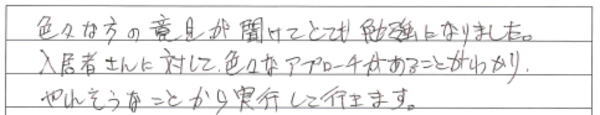 色々な方の意見が聞けてとても勉強になりました。
入居者さんに対して、色々なアプローチがあることがわかり、
やれそうなことから実行して行きます。